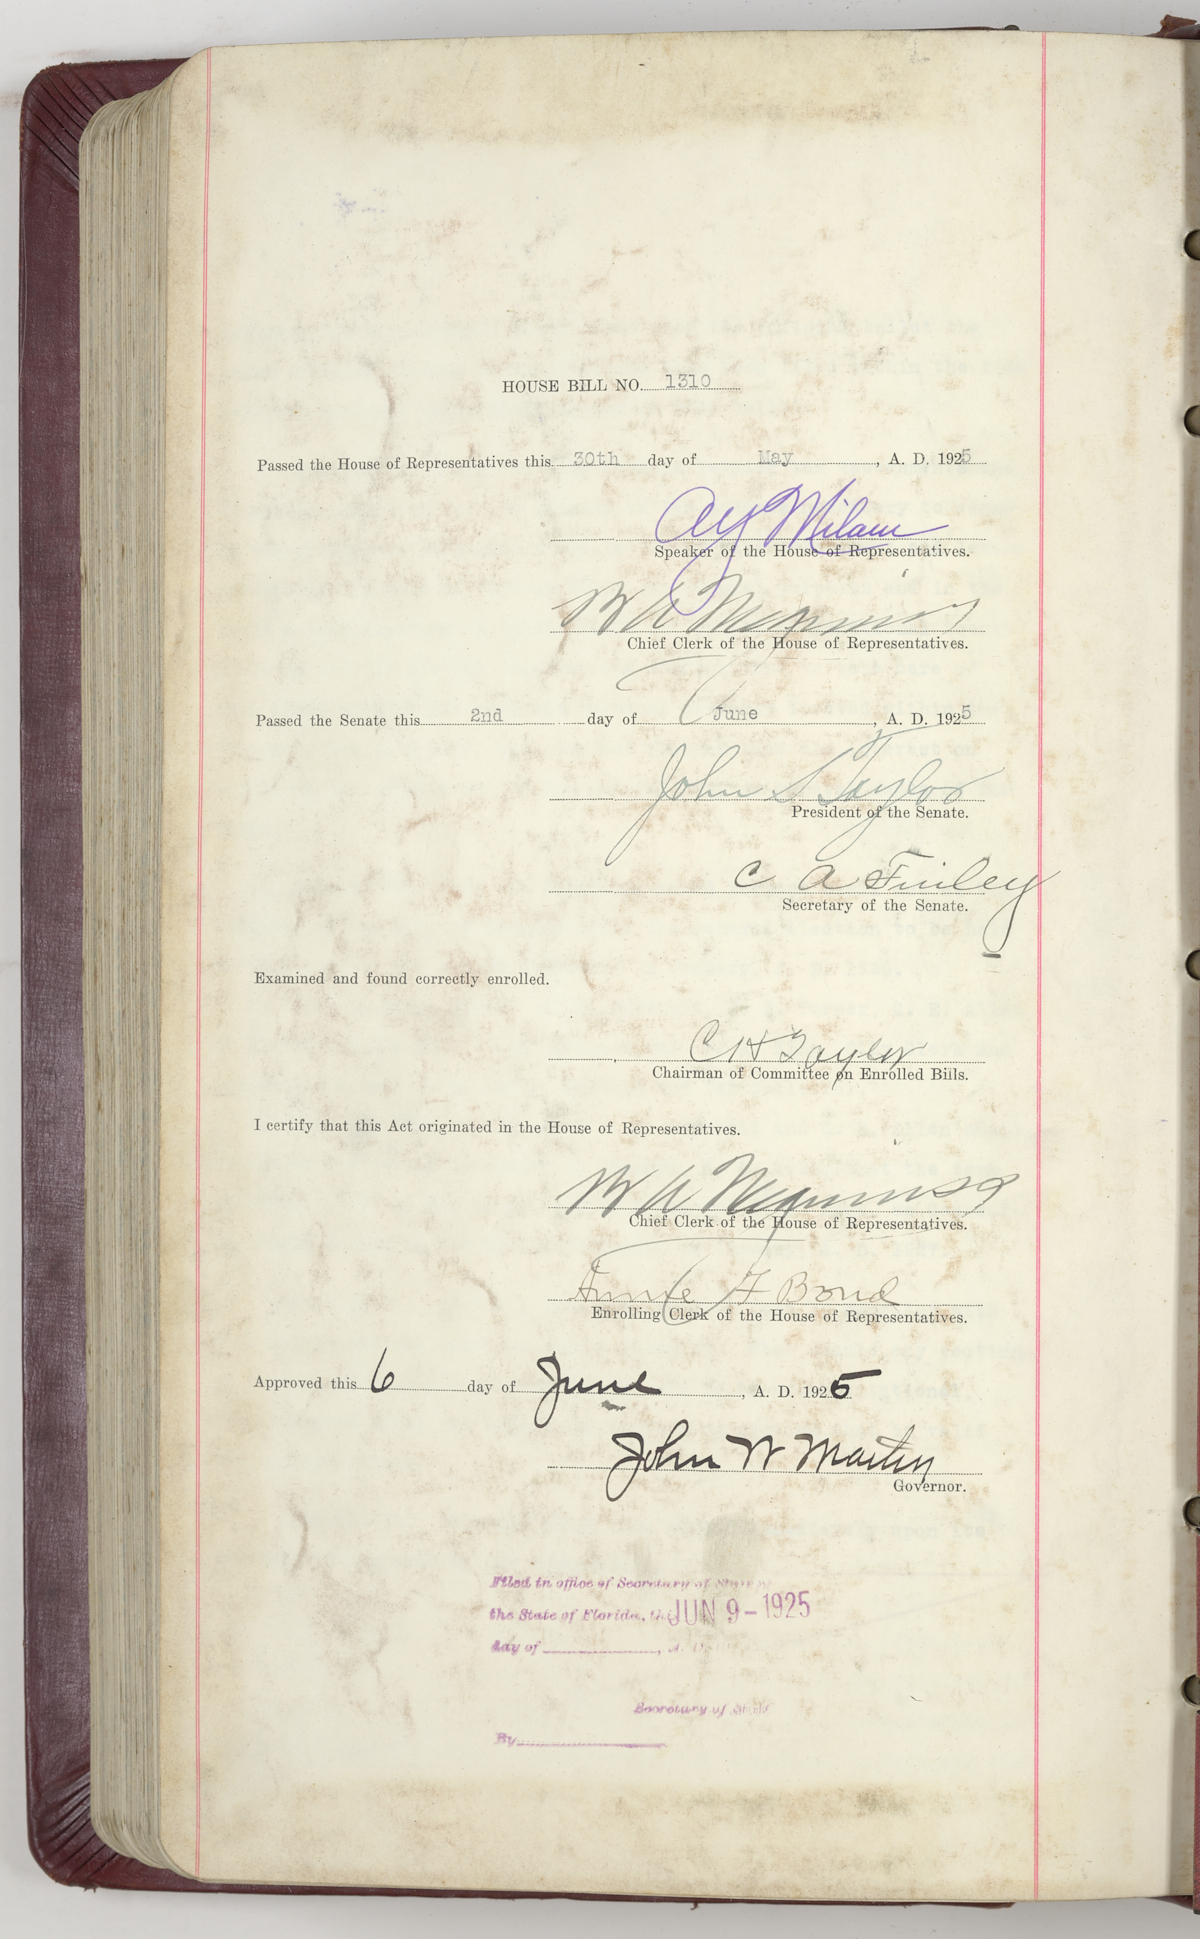 HOUSE BILL NO. 1310
Passed the House of Representatives this 30th day of May, A. D. 1925
A Y Milam
Speaker of the House of Representatives.
Chief Clerk of the House of Representatives.
Passed the Senate this 2nd day of June, A. D. 1925
John S Taylor
President of the Senate.
C A Finley
Secretary of the Senate.
Examined and found correctly enrolled.
C H Taylor
Chairman of Committee on Enrolled Bills.
I certify that this Act originated in the House of Representatives.
Chief Clerk of the House of Representatives.
F Bond
Enrolling Clerk of the House of Representatives.
Approved this 6 day of June, A. D. 1925
John W Martin
Governor.
Filed in office of Secretary of State
the State of Florida, JUN 9-1925
day of , A. D.
Secretary of State
By